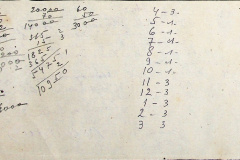 20000
70
14000
60
50
3000
365
15
1825
365
5475
2
10950
4 - 3 -
5 - 1 -
6 - 1 -
7 - 1 -
8 - 1 -
9 - 1 -
10 - 1 -
11 - 3
12 - 3
1 - 3
2 - 3
3 3